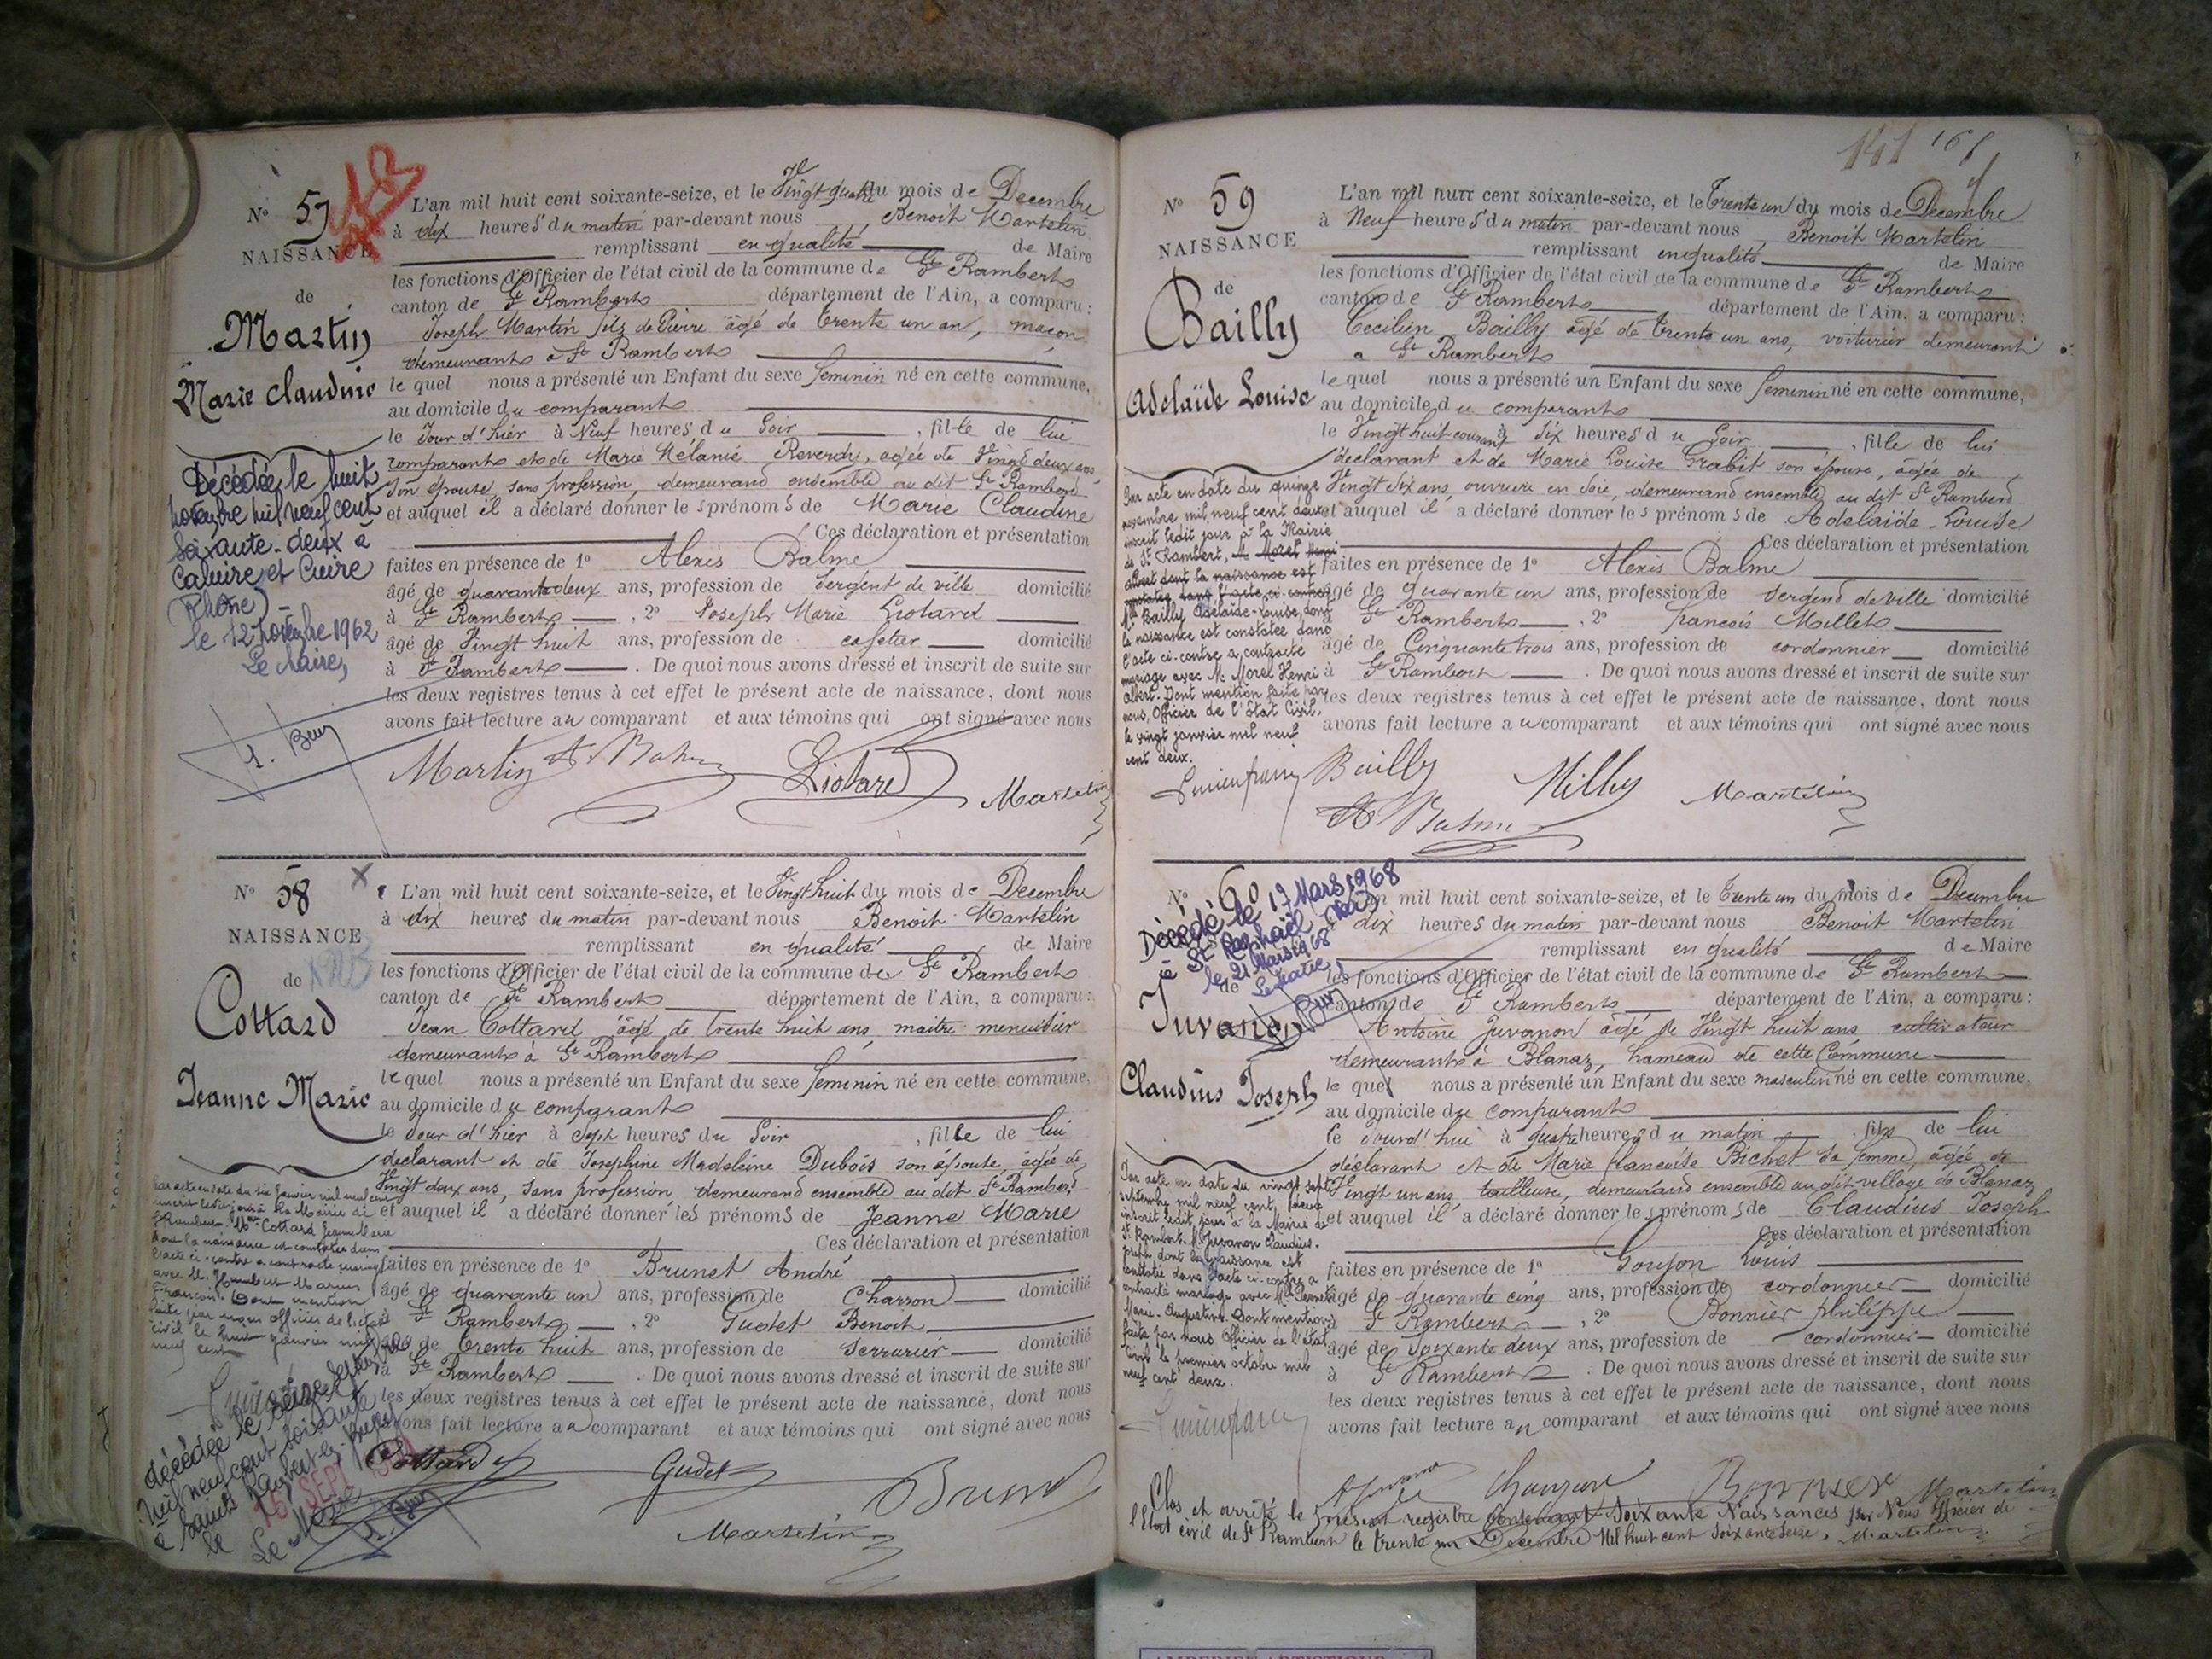 N° 57
NAISSANCE
de
Martin
Marie Claudine
Décédée le huit
novembre mil neuf cent
soixante-deux à
Caluire et Cuire
(Rhône)
le 12 novembre 1962
Le Maire,
L'an mil huit cent soixante-seize, et le Vingt quatre du mois de Decembre
à dix heures du matin par-devant nous Benoit Martelin
remplissant en qualité de Maire
les fonctions d'Officier de l'état civil de la commune de St Rambert
canton de St Rambert département de l'Ain, a comparu :
Joseph Martin fils de Pierre âgé de trente un an, maçon
demeurant à St Rambert
le quel nous a présenté un Enfant du sexe feminin né en cette commune,
au domicile du comparant
le Jour d'hier à Neuf heures du Soir, fille de lui
comparant et de Marie Mélanie Reverdy, agée de Vingt deux ans,
son épouse sans profession, demeurand ensemble au dit St Rambert
et auquel il a déclaré donner les prénoms de Marie Claudine
Ces déclaration et présentation
faites en présence de 1° Alexis Balme
âgé de quarante deux ans, profession de Sergent de ville domicilié
à St Rambert, 2° Joseph Marie Liotard
âgé de Vingt huit ans, profession de cafetier domicilié
à St Rambert. De quoi nous avons dressé et inscrit de suite sur
les deux registres tenus à cet effet le présent acte de naissance, dont nous
avons fait lecture au comparant et aux témoins qui ont signé avec nous
Martin A. Balme Liotard Martelin
N° 58
NAISSANCE
de
Cottard
Jeanne Marie
Par acte en date du six Janvier mil neuf cent
inscrit ledit jour à la Mairie de
St Rambert, Mlle Cottard Jeanne Marie
dont la naissance est constatée dans
l'acte ci-contre a contracté mariage
avec M. Humbert Marius
François. Dont mention
faite par nous officier de l'état
civil le huit Janvier mil
neuf cent
décédée le seize septembre
mil neuf cent soixante
à Saint Rambert-en-Bugey
le 16 SEPT
Le Maire
L'an mil huit cent soixante-seize, et le Vingt huit du mois de Decembre
à dix heures du matin par-devant nous Benoit Martelin
remplissant en qualité de Maire
les fonctions d'Officier de l'état civil de la commune de St Rambert
canton de St Rambert département de l'Ain, a comparu :
Jean Cottard âgé de trente huit ans, maitre menuisier
demeurant à St Rambert
le quel nous a présenté un Enfant du sexe feminin né en cette commune,
au domicile du comparant
le Jour d'hier à Sept heures du Soir, fille de lui
declarant et de Josephine Madeleine Dubois son épouse, âgée de
Vingt deux ans, sans profession, demeurand ensemble au dit St Rambert
et auquel il a déclaré donner les prénoms de Jeanne Marie
Ces déclaration et présentation
faites en présence de 1° Brunet André
âgé de quarante un ans, profession de Charron domicilié
à St Rambert, 2° Gudet Benoit
âgé de trente huit ans, profession de Serrurier domicilié
à St Rambert. De quoi nous avons dressé et inscrit de suite sur
les deux registres tenus à cet effet le présent acte de naissance, dont nous
avons fait lecture au comparant et aux témoins qui ont signé avec nous
Cottard Gudet Brunet
Martelin
141 161
N° 59
NAISSANCE
de
Bailly
Adelaïde Louise
Par acte en date du quinze
novembre mil neuf cent deux
inscrit ledit jour à la Mairie
de St Rambert, M. Morel Henri
albert dont la naissance est
constatée dans l'acte ci-contre
Mlle Bailly Adelaïde-Louise, dont
la naissance est constatée dans
l'acte ci-contre a contracté
mariage avec M. Morel Henri
albert. Dont mention faite par
nous, Officier de l'Etat Civil,
le vingt janvier mil neuf
cent deux.
L'an mil huit cent soixante-seize, et le Trente un du mois de Decembre
à Neuf heures du matin par-devant nous Benoit Martelin
remplissant en qualité de Maire
les fonctions d'Officier de l'état civil de la commune de St Rambert
canton de St Rambert département de l'Ain, a comparu :
Bailly âgé de trente un ans, voiturier demeurant
a St Rambert
le quel nous a présenté un Enfant du sexe feminin né en cette commune,
au domicile du comparant
le Vingt huit courant à Six heures du Soir, fille de lui
declarant et de Marie Louise Grabit son épouse, âgée de
Vingt Six ans, ouvriere en soie, demeurand ensemble au dit St Rambert
et auquel il a déclaré donner les prénoms de Adelaïde Louise
Ces déclaration et présentation
faites en présence de 1° Alexis Balme
âgé de quarante un ans, profession de Sergend de ville domicilié
à St Rambert, 2° Francois Millet
âgé de Cinquante trois ans, profession de cordonnier domicilié
à St Rambert. De quoi nous avons dressé et inscrit de suite sur
les deux registres tenus à cet effet le présent acte de naissance, dont nous
avons fait lecture au comparant et aux témoins qui ont signé avec nous
Bailly Martelin
A Balme
N° 60
Décédé le 17 Mars 1968
à St Raphaël (Var)
le 21 Mars 1968
Le Maire,
de
Juvanon
Claudius Joseph
Par acte en date du vingt sept
septembre mil neuf cent deux
inscrit ledit jour à la Mairie de
St Rambert. M. Juvanon Claudius-
Joseph dont la naissance est
constatée dans l'acte ci-contre a
contracté mariage avec Mlle Pernet
Marie-Augustine. Dont mention
faite par nous Officier de l'état
Civil le premier octobre mil
neuf cent deux.
L'an mil huit cent soixante-seize, et le Trente un du mois de Decembre
à dix heures du matin par-devant nous Benoit Martelin
remplissant en qualité de Maire
les fonctions d'Officier de l'état civil de la commune de St Rambert
canton de St Rambert département de l'Ain, a comparu :
Antoine Juvanon âgé de Vingt huit ans cultivateur
demeurant à Blanaz, hameau de cette Commune
le quel nous a présenté un Enfant du sexe masculin né en cette commune,
au domicile du comparant
le Jourd'hui à quatre heures du matin, fils de lui
déclarant et de Marie Francoise Bichet sa femme, agée de
Vingt un ans tailleuse, demeurand ensemble au dit village de Blanaz
et auquel il a déclaré donner les prénoms de Claudius Joseph
Ces déclaration et présentation
faites en présence de 1° Goujon Louis
âgé de quarante cinq ans, profession de cordonnier domicilié
à St Rambert, 2° Bonnier philippe
âgé de Soixante deux ans, profession de cordonnier domicilié
à St Rambert. De quoi nous avons dressé et inscrit de suite sur
les deux registres tenus à cet effet le présent acte de naissance, dont nous
avons fait lecture au comparant et aux témoins qui ont signé avec nous
Bonnier Martelin
Clos et arrêté le présent registre contenant Soixante Naissances par Nous Officier de
l'Etat civil de St Rambert le trente un Decembre Mil huit cent soixante Seize. Martelin